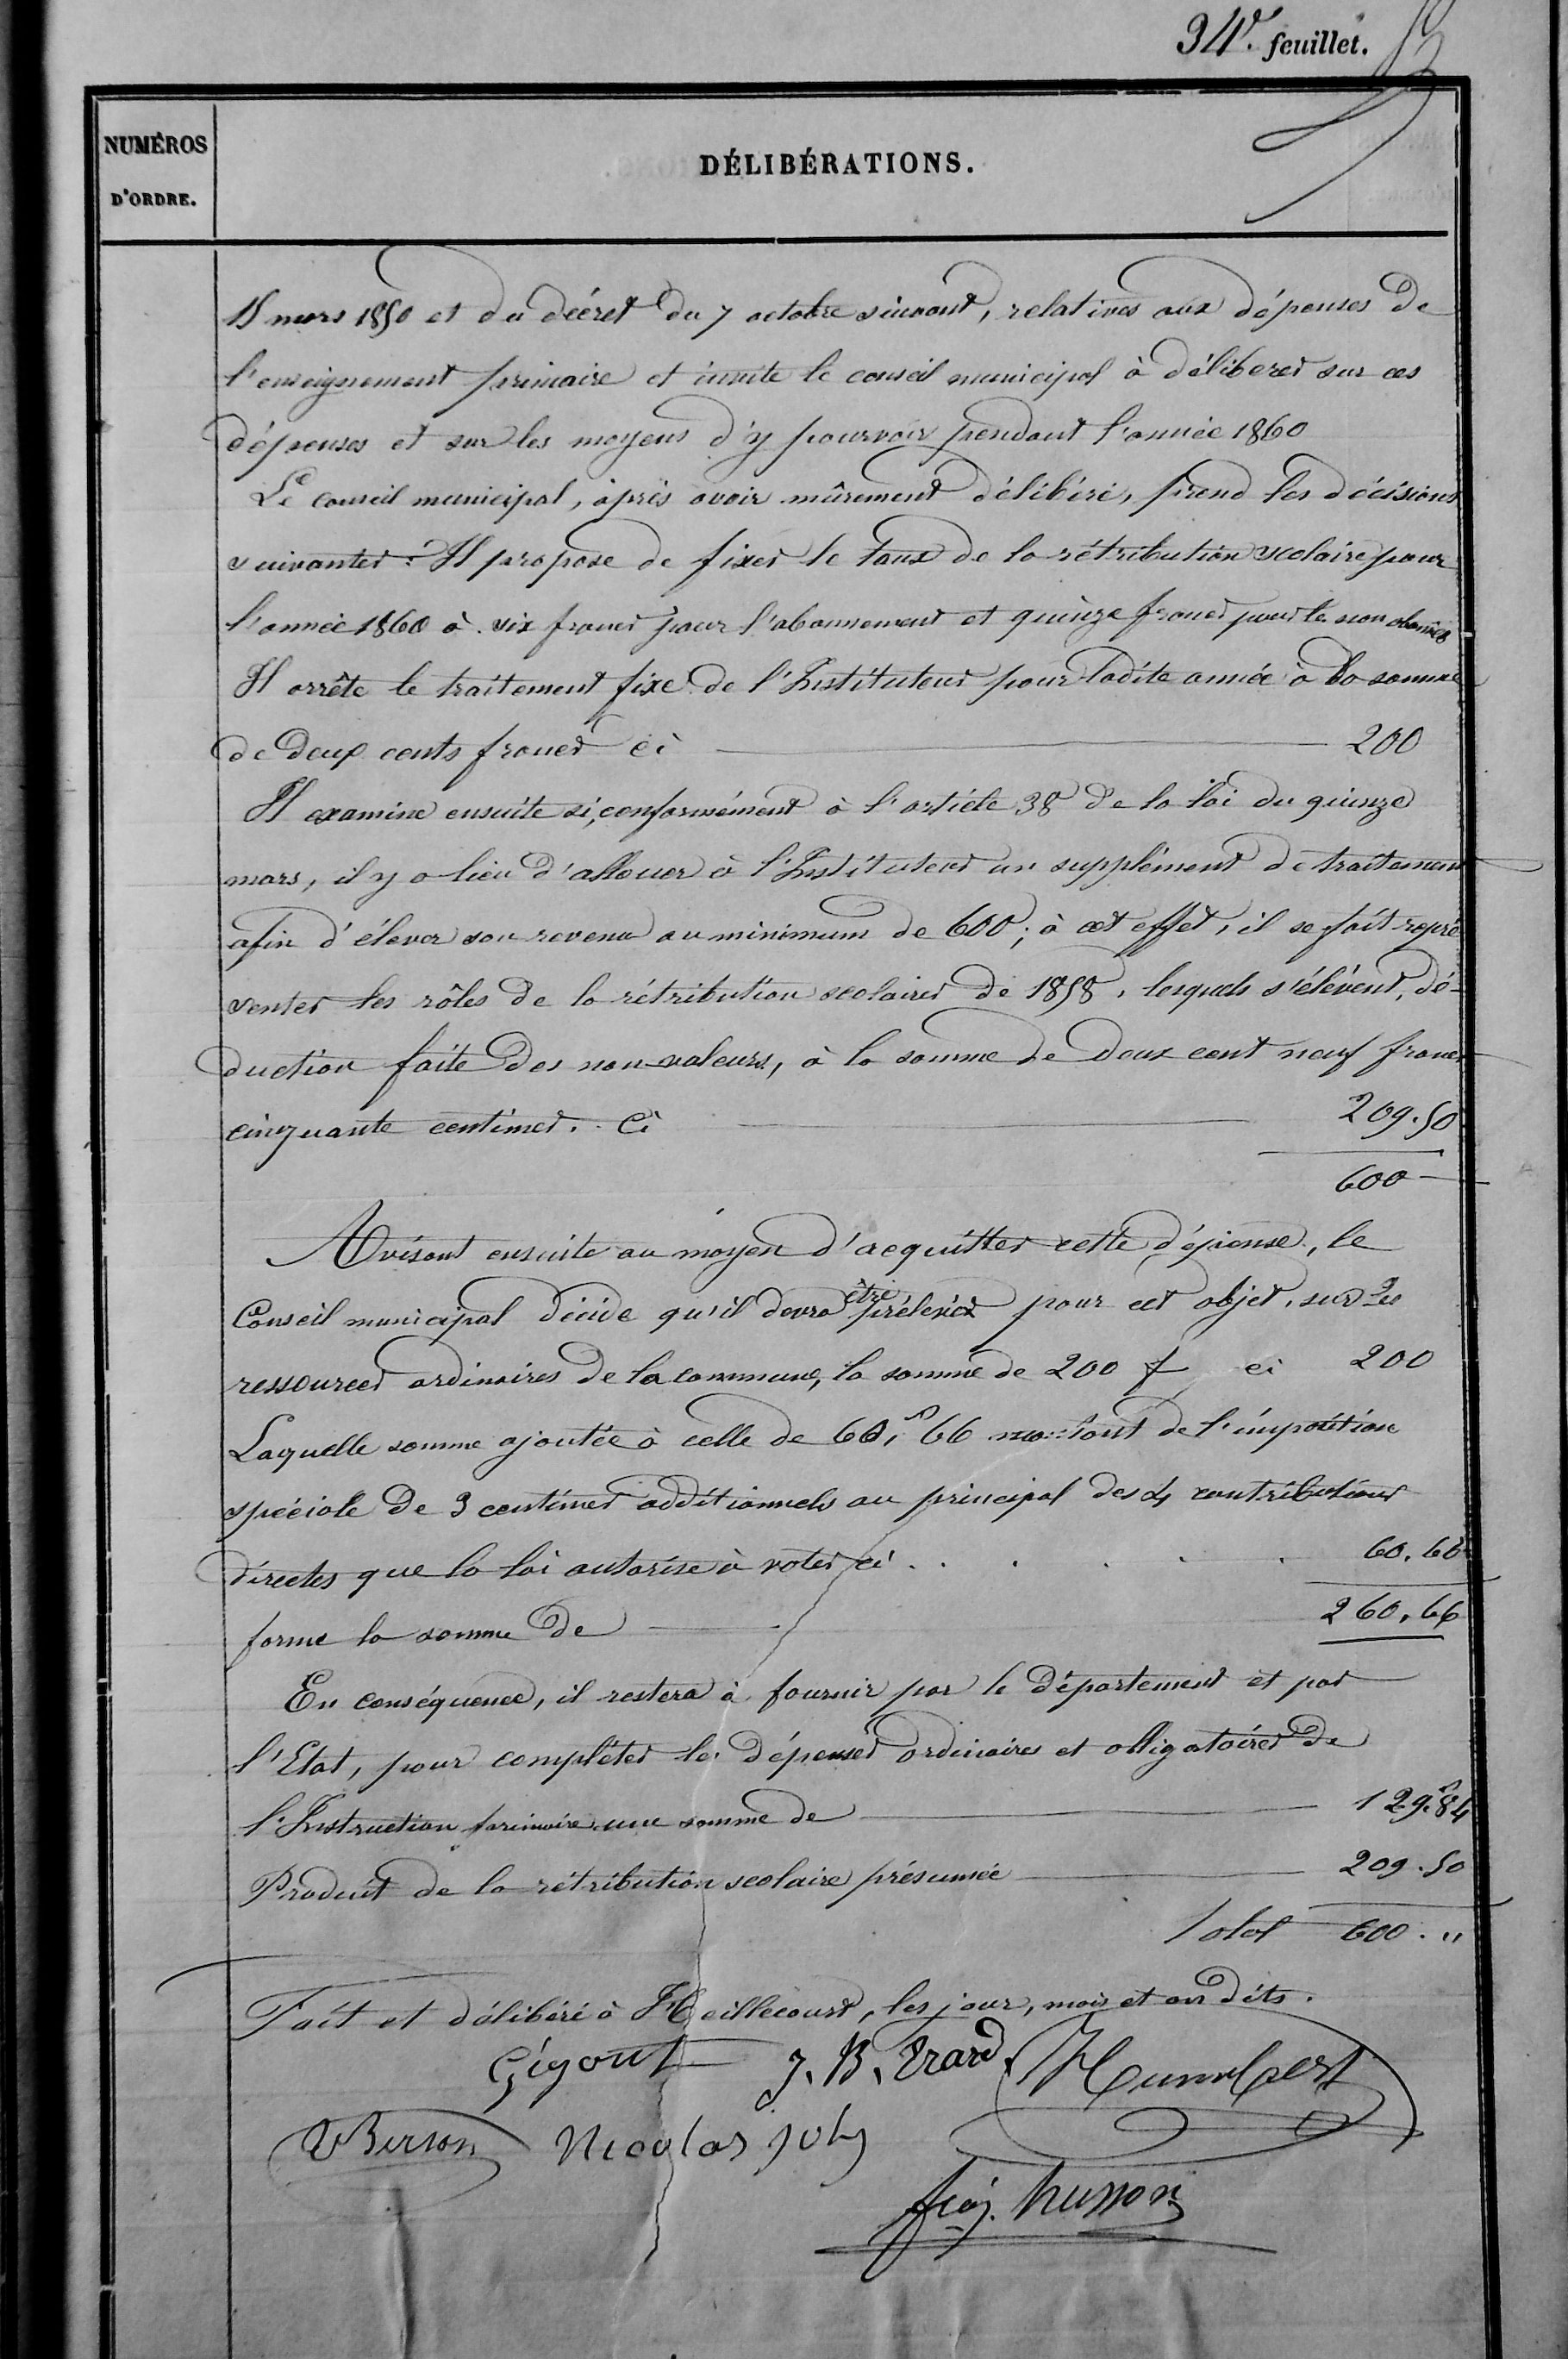 34e. feuillet.
NUMÉROS
D'ORDRE.
DÉLIBÉRATIONS.
15 mars 1850 et du décret du 7 octobre suivant, relatives aux dépenses de
l'enseignement primaire et invite le conseil municipal à déliberer sur ces
dépenses et sur les moyens d'y pourvoir pendant l'année 1860
Le conseil municipal, après avoir mûrement délibéré, prend les décisions
suivantes : Il propose de fixer le taux de la rétribution scolaire pour
l'année 1860 à six francs pour l'abonnement et quinze francs pour les non abonnés
Il arrête le traitement fixe de l'Instituteur pour ladite année à la somme
de deux cents francs ci 200
Il examine ensuite si, conformément à l'article 38 de la loi du quinze
mars, il y a lieu d'allouer à l'Instituteur un supplément de traitement
afin d'élever son revenu au minimum de 600 ; à cet effet, il se fait repré
senter les rôles de la rétribution scolaires de 1858, lesquels s'élèvent, dé-
duction faite des non-valeurs, à la somme de deux cent neuf francs
cinquante centimes. Ci 209.50
600
Avisant ensuite au moyen d'acquitter cette dépense, le
Conseil municipal décide qu'il devra être prélevé pour cet objet, sur les
ressources ordinaires de la commune, la somme de 200 f ci 200
Laquelle somme ajoutée à celle de 60,f 66 montant de l'imposition
spéciale de 3 centimes additionnels au principal des 4 contributions
directes que la loi autorise à voter ci . . . . . 60,66
forme la somme de 260,66
En conséquence, il restera à fournir par le département et par
l'Etat, pour compléter les dépenses ordinaires et obligatoires de
l'Instruction primaire une somme de 129.f84
Produit de la rétribution scolaire présumée 209.50
Total 600. "
Fait et délibéré à Heillecourt, les jour, mois et an dits.
Gigout J. B. Erard Humbert
V Berson Nicolas Joly
fcois. husson